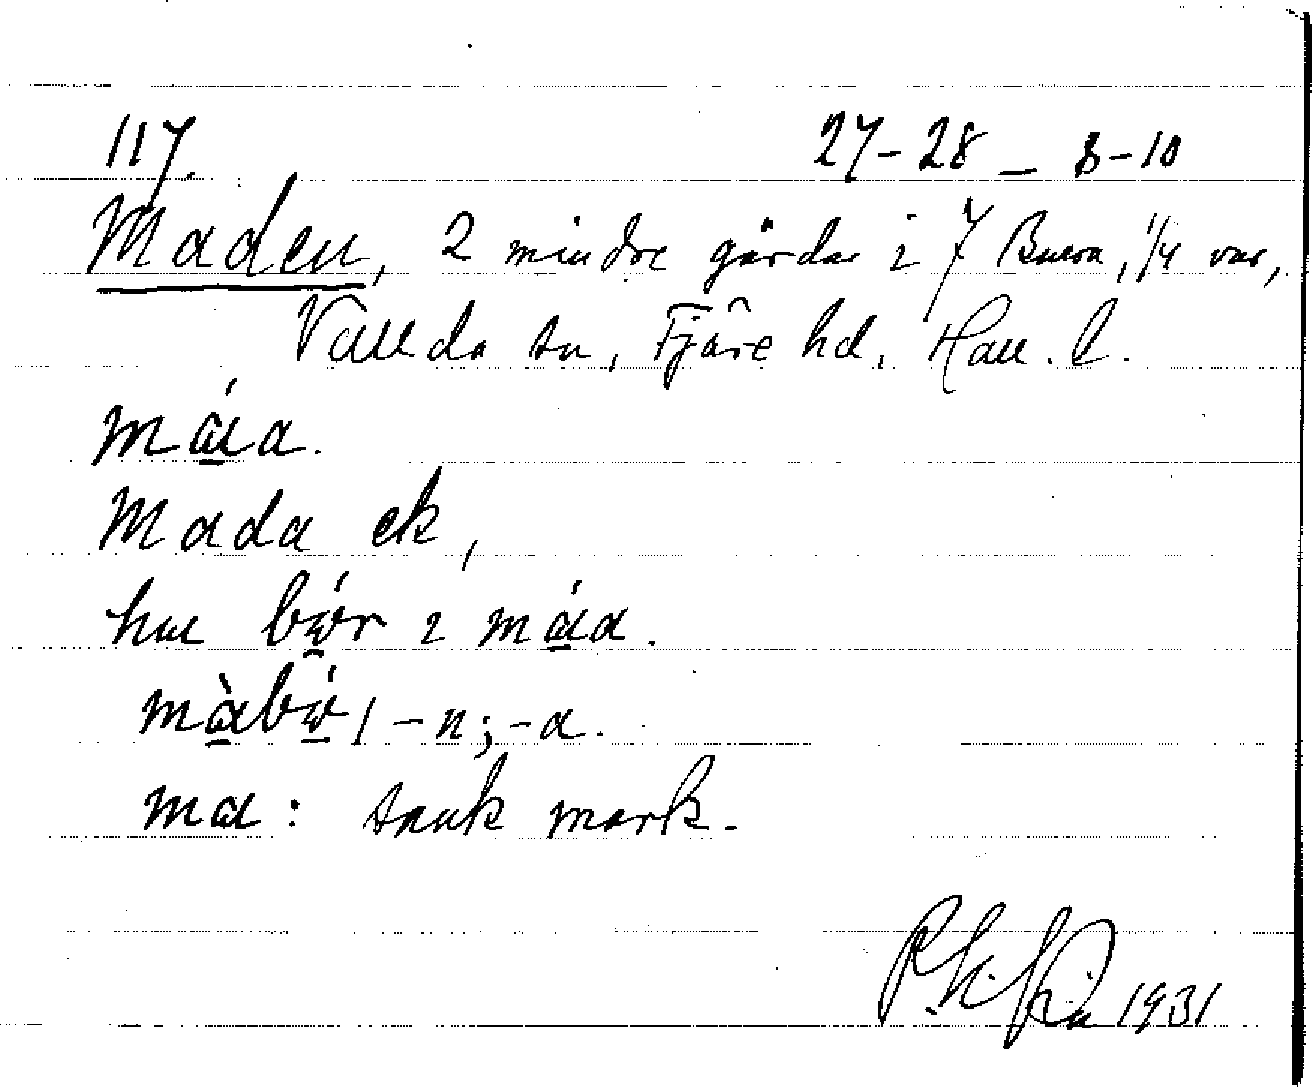 117. 27-28 - 8-10
Maden, 2 mindre gårdar i 7 Buera, 1/4 var,
Vallda sn, Fjäre hd, Hall. l.
máa.
Mada ek,
hu bór i máa.
màbó, -n; -a.
ma: sank mark.
1931